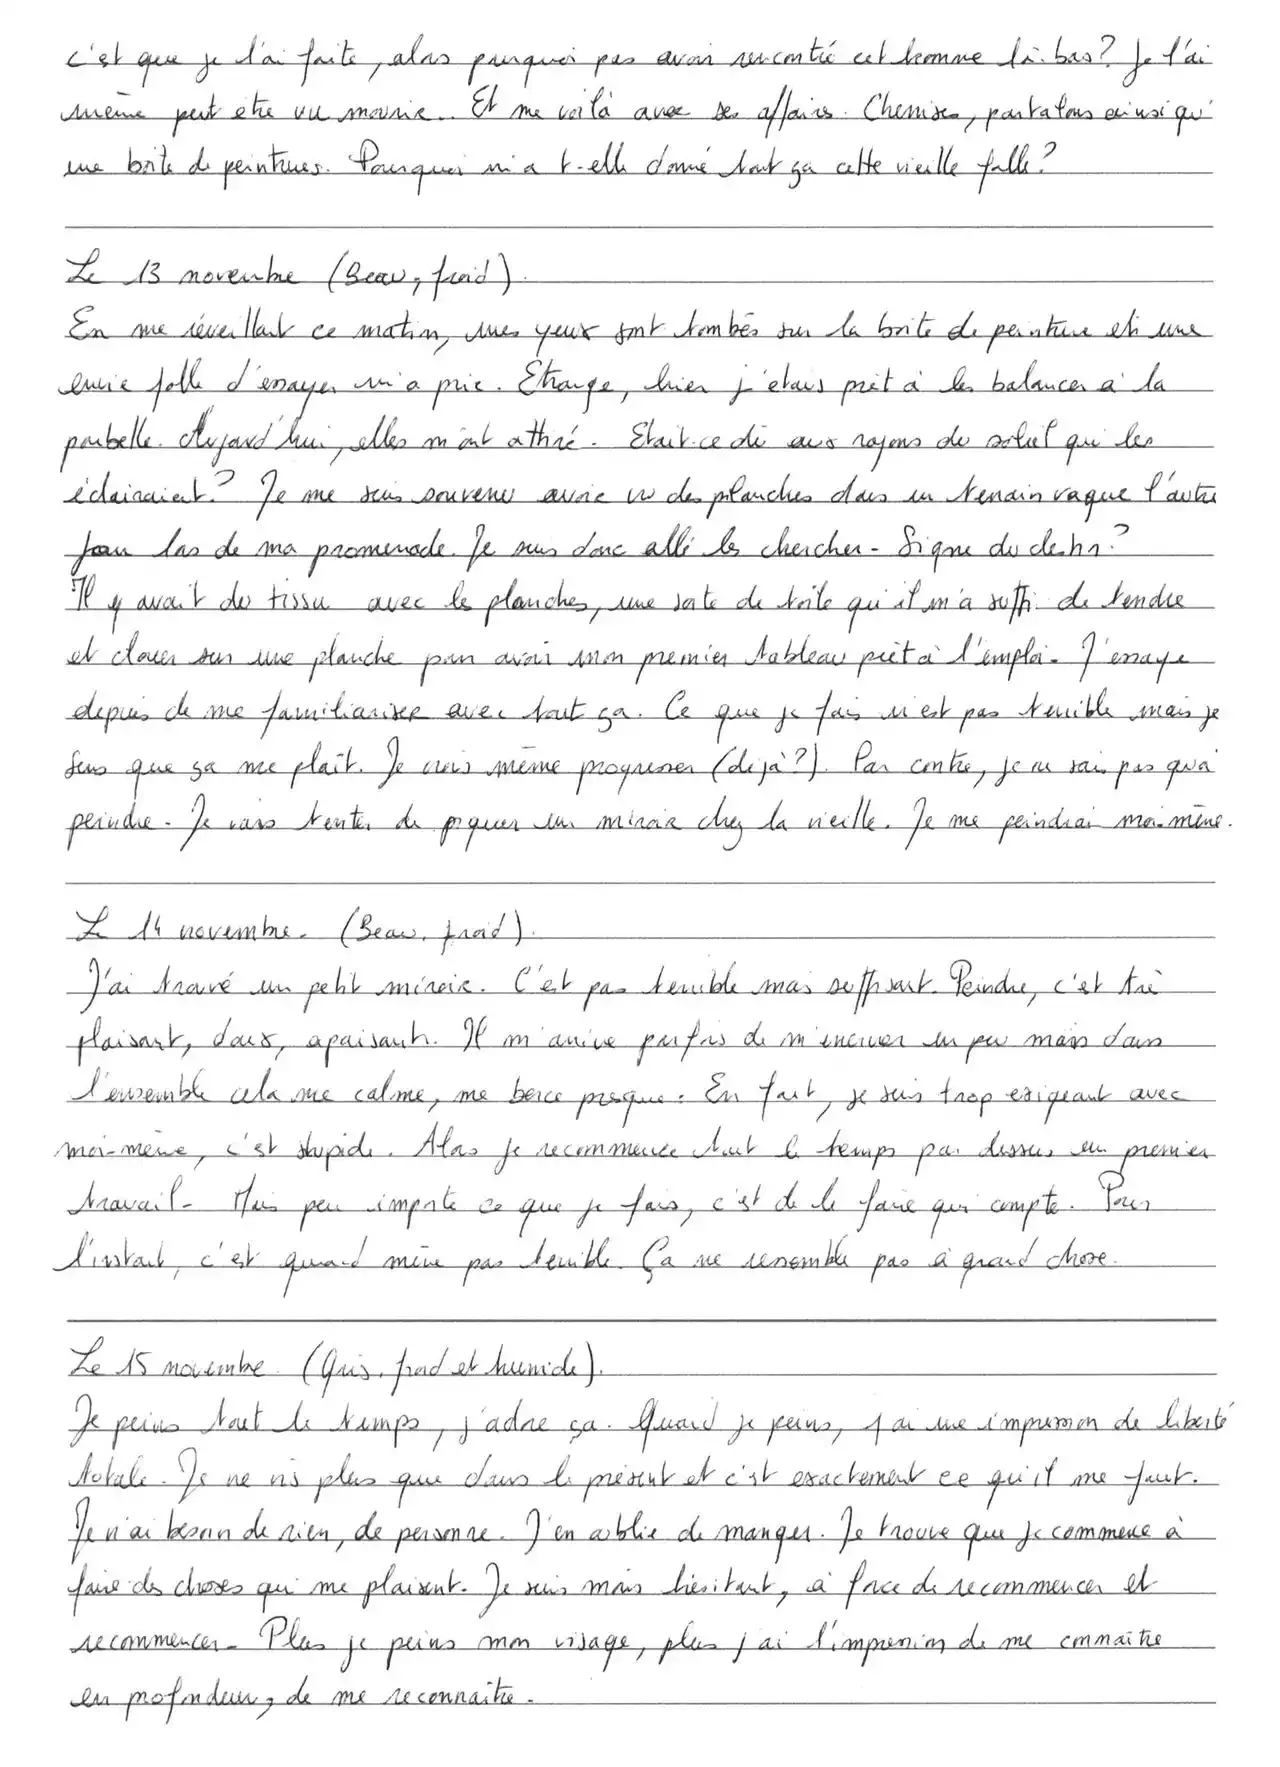 c'est que je l'ai faite, alors pourquoi pas avoir rencontré cet homme là-bas? Je l'ai
même peut être vu mourir... Et me voilà avec ses affaires. Chemises, pantalons ainsi qu'
une boîte de peintures. Pourquoi m'a t-elle donné tout ça cette vieille folle?
Le 13 novembre (Beau, froid).
En me réveillant ce matin, mes yeux sont tombés sur la boîte de peinture et une
envie folle d'essayer m'a prie. Etrange, hier j'étais prêt à les balancer à la
poubelle. Aujourd'hui, elles m'ont attiré. Etait-ce dû aux rayons du soleil qui les
éclairaient? Je me suis souvenu avoir vu des planches dans un terrain vague l'autre
jour lors de ma promenade. Je suis donc allé les chercher - Signe du destin?
Il y avait du tissu avec les planches, une sorte de toile qu'il m'a suffi de tendre
et clouer sur une planche pour avoir mon premier tableau prêt à l'emploi. J'essaye
depuis de me familiariser avec tout ça. Ce que je fais n'est pas terrible mais je
sens que ça me plaît. Je crois même progresser (déjà?). Par contre, je ne sais pas quoi
peindre. Je vais tenter de piquer un miroir chez la vieille. Je me peindrai moi-même.
Le 14 novembre. (Beau, froid).
J'ai trouvé un petit miroir. C'est pas terrible mais suffisant. Peindre, c'est très
plaisant, doux, apaisant. Il m'arrive parfois de m'énerver un peu mais dans
l'ensemble cela me calme, me berce presque. En fait, je suis trop exigeant avec
moi-même, c'est stupide. Alors je recommence tout le temps par dessus un premier
travail - Mais peu importe ce que je fais, c'est de le faire qui compte. Pour
l'instant, c'est quand même pas terrible. Ça ne ressemble pas à grand chose.
Le 15 novembre. (Gris, froid et humide).
Je peins tout le temps, j'adore ça. Quand je peins, j'ai une impression de liberté
totale. Je ne vis plus que dans le présent et c'est exactement ce qu'il me faut.
Je n'ai besoin de rien, de personne. J'en oublie de manger. Je trouve que je commence à
faire des choses qui me plaisent. Je suis moins hésitant, à force de recommencer et
recommencer - Plus je peins mon visage, plus j'ai l'impression de me connaître
en profondeur, de me reconnaître.